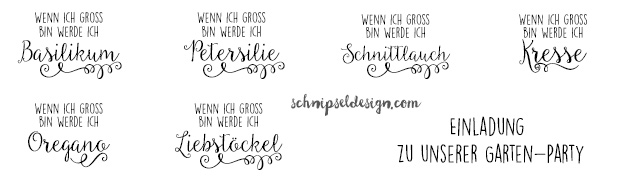 WENN ICH GROSS
BIN WERDE ICH
Basilikum
WENN ICH GROSS
BIN WERDE ICH
Petersilie
WENN ICH GROSS
BIN WERDE ICH
Schnittlauch
WENN ICH GROSS
BIN WERDE ICH
Kresse
WENN ICH GROSS
BIN WERDE ICH
Oregano
WENN ICH GROSS
BIN WERDE ICH
Liebstöckel
schnipseldesign.com
EINLADUNG
ZU UNSERER GARTEN-PARTY